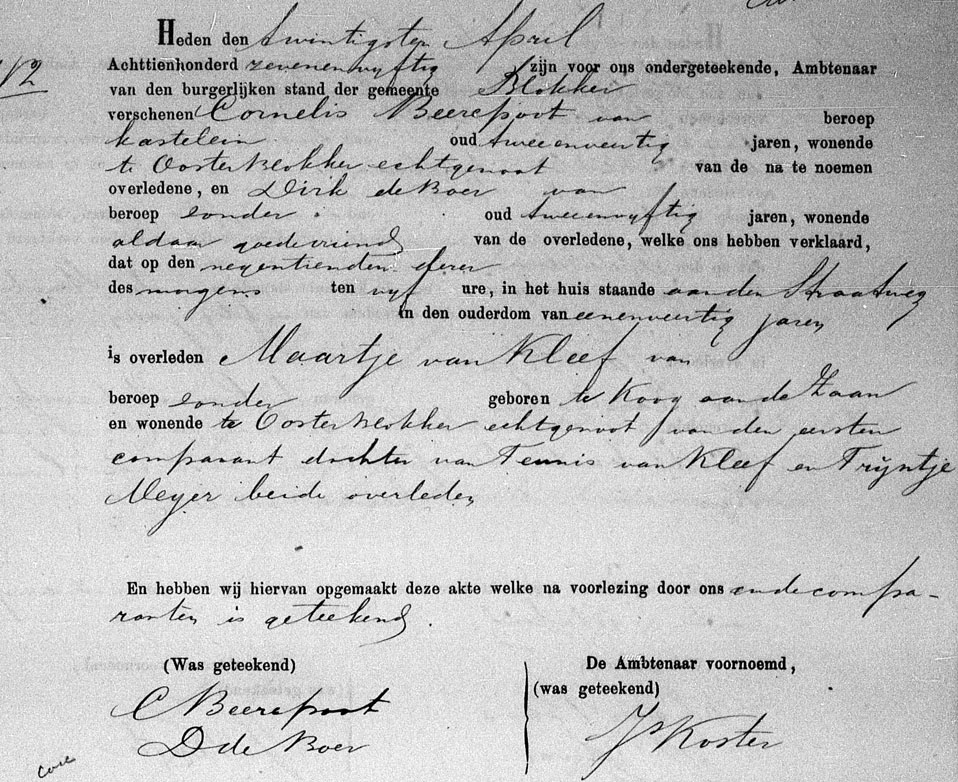 Heden den twintigsten April
Achttienhonderd zevenenvyftig zijn voor ons ondergeteekende, Ambtenaar
12
van den burgerlijken stand der gemeente Blokker
verschenen Cornelis Beerepoot van beroep
kastelein oud tweeenveertig jaren, wonende
te Oosterblokker echtgenoot van de na te noemen
overledene, en Dirk de Boer van
beroep zonder oud tweeenvyftig jaren, wonende
aldaar goedevriend van de overledene, welke ons hebben verklaard,
dat op den negentienden dezer
des morgens ten vyf ure, in het huis staande aan den Straatweg
in den ouderdom van eenenveertig jaren
is overleden Maartje van Kleef van
beroep zonder geboren te Koog aan de Zaan
en wonende te Oosterblokker echtgenoot van den eersten
comparant dochter van Teunis van Kleef en Tryntje
Meyer beide overleden
En hebben wij hiervan opgemaakt deze akte welke na voorlezing door ons en de compa-
ranten is geteekend.
(Was geteekend) De Ambtenaar voornoemd,
(was geteekend)
C Beerepoot
D de Boer
Js Koster